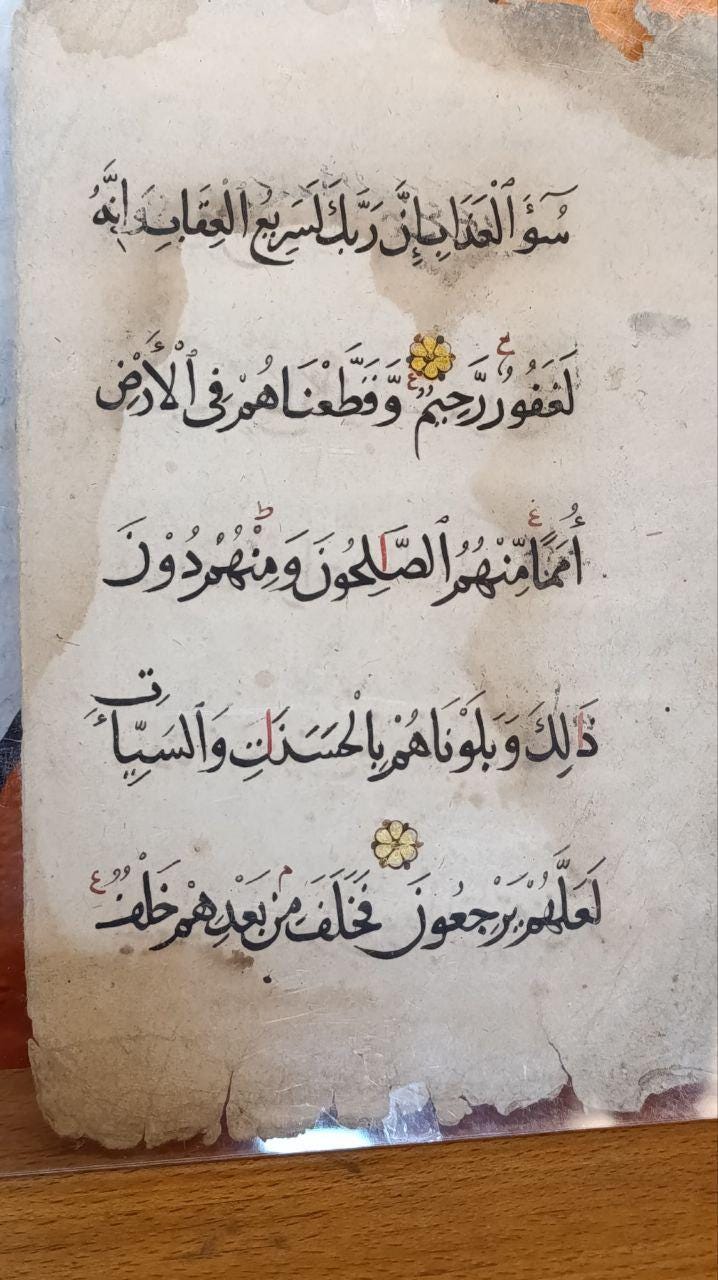 سُوٓءَ ٱلْعَذَابِ إِنَّ رَبَّكَ لَسَرِيعُ الْعِقَابِ وَإِنَّهُ
لَغَفُورٌ رَّحِيمٌ وَقَطَّعْنَاهُمْ فِى ٱلْأَرْضِ
أُمَمًا مِّنْهُمُ ٱلصَّالِحُونَ وَمِنْهُمْ دُوْنَ
ذَالِكَ وَبَلَوْنَاهُمْ بِالْحَسَنَاتِ وَٱلسَيِّئَاتِ
لَعَلَّهُمْ يَرْجِعُونَ فَخَلَفَ مِنْ بَعْدِهِمْ خَلْفٌ